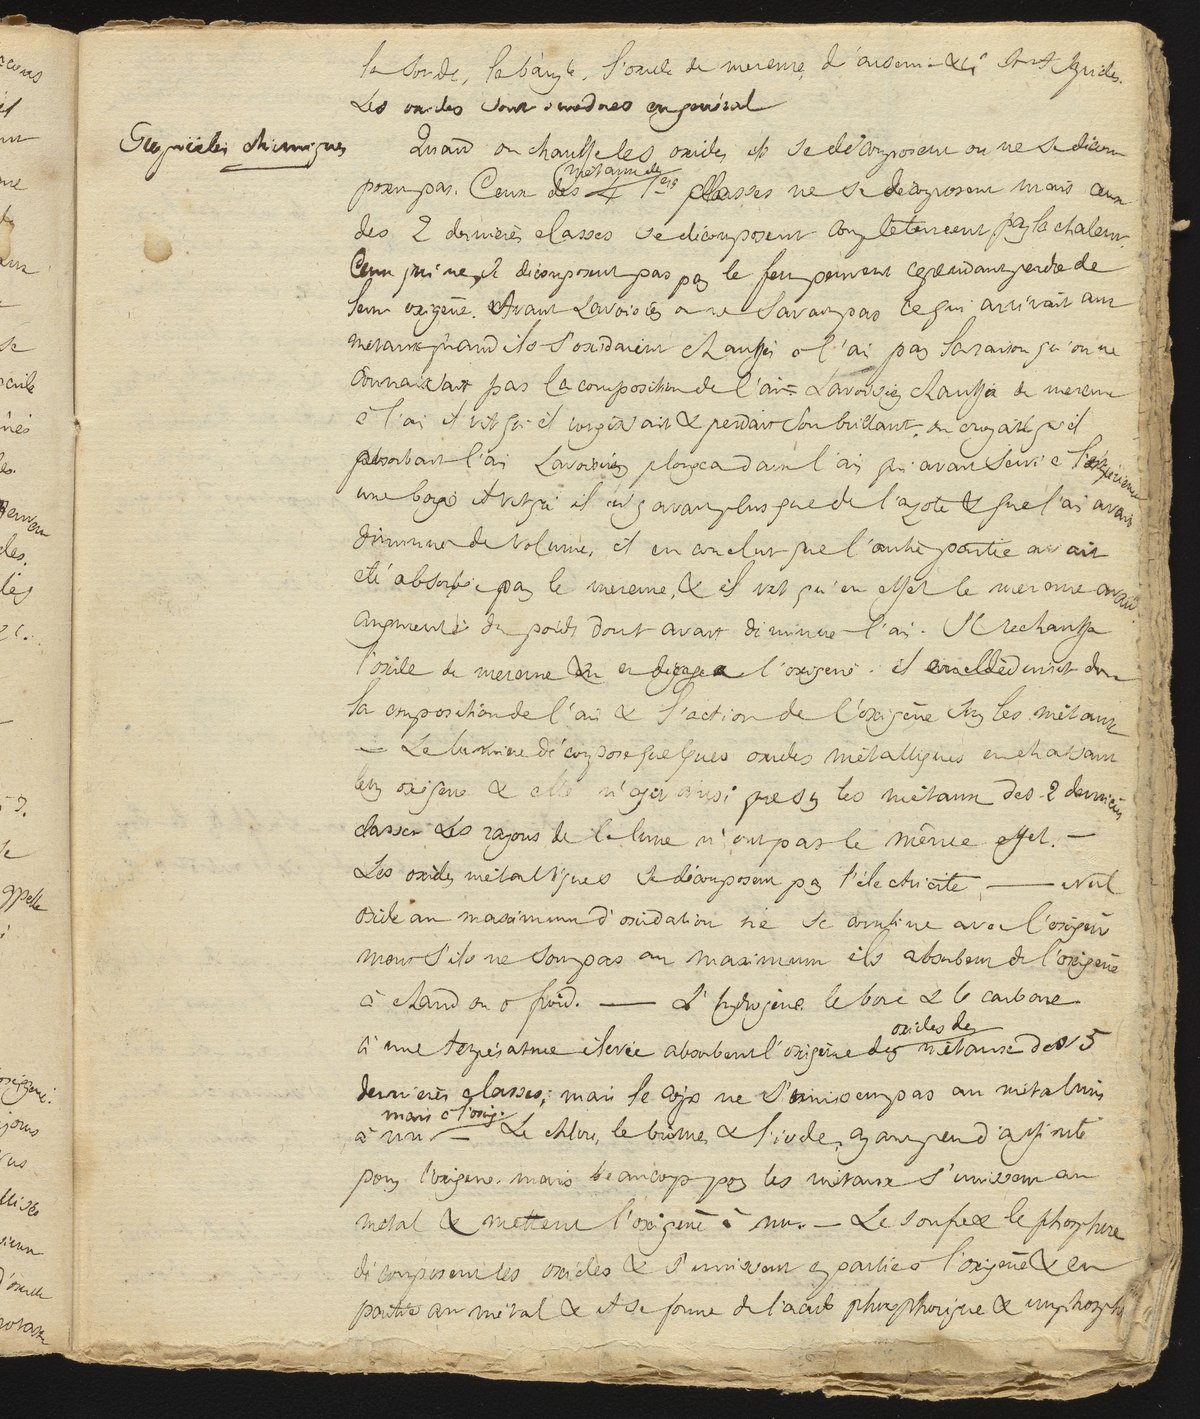 la soude, la baryte, l'oxide de mercure, d'arsenic &c sont liquides.
Les oxides sont inodores en général
Propriétés chimiques
Quand on chauffe les oxides ils se décomposent ou ne se décom
posent pas. Ceux des 4 1eres classes ne se décomposent mais ceux
métaux des
des 2 dernières classes se décomposent completement par la chaleur.
Ceux qui ne se décomposent pas par le feu peuvent cependant perdre de
leur oxigène. Avant Lavoisier on ne savait pas ce qui arrivait aux
metaux quand ils s'oxidaient chauffés à l'air par la raison qu'on ne
connaissait pas la composition de l'air. Lavoisier chauffa du mercure
à l'air et vit qu'il rougissait & perdait son brillant, on croyait qu'il
absorbait l'air Lavoisier plongea dans l'air qui avait servi à l'expérience
une bougie et vit qu'il n'y avait plus que de l'azote & que l'air avait
diminué de volume, il en conclut que l'autre partie avait
eté absorbée par le mercure, & il vit qu'en effet le mercure avait
augmenté du poids dont avait diminué l'air. Il rechauffa
l'oxide de mercure & en dégagea l'oxigène. il en déduisit donc
la composition de l'air & l'action de l'oxigène sur les métaux
— La lumière décompose quelques oxides métalliques en chassant
leur oxigène & elle n'agit ainsi que sur les métaux des 2 dernières
classes Les rayons de la lune n'ont pas le même effet. —
Les oxides métalliques se décomposent par l'électricité — Nul
oxide au maximum d'oxidation ne se combine avec l'oxigène
mais s'ils ne sont pas au maximum ils absorbent de l'oxigène
à chaud ou à froid. — L'hydrogène, le bore & le carbone
à une température élevée absorbent l'oxigène des métaux des 5
oxides des
dernières classes; mais le corps ne s'unissent pas au métal mis
mais à l'oxig.
à nu — Le chlore, le brôme, & l'iode, ayant peu d'affinité
pour l'oxigène mais beaucoup pour les métaux s'unissent au
metal & mettent l'oxigène à nu. — Le soufre & le phosphore
décomposent les oxides & s'unissent en partie à l'oxigène & en
partie au métal & il se forme de l'acide phosphorique & un phosph